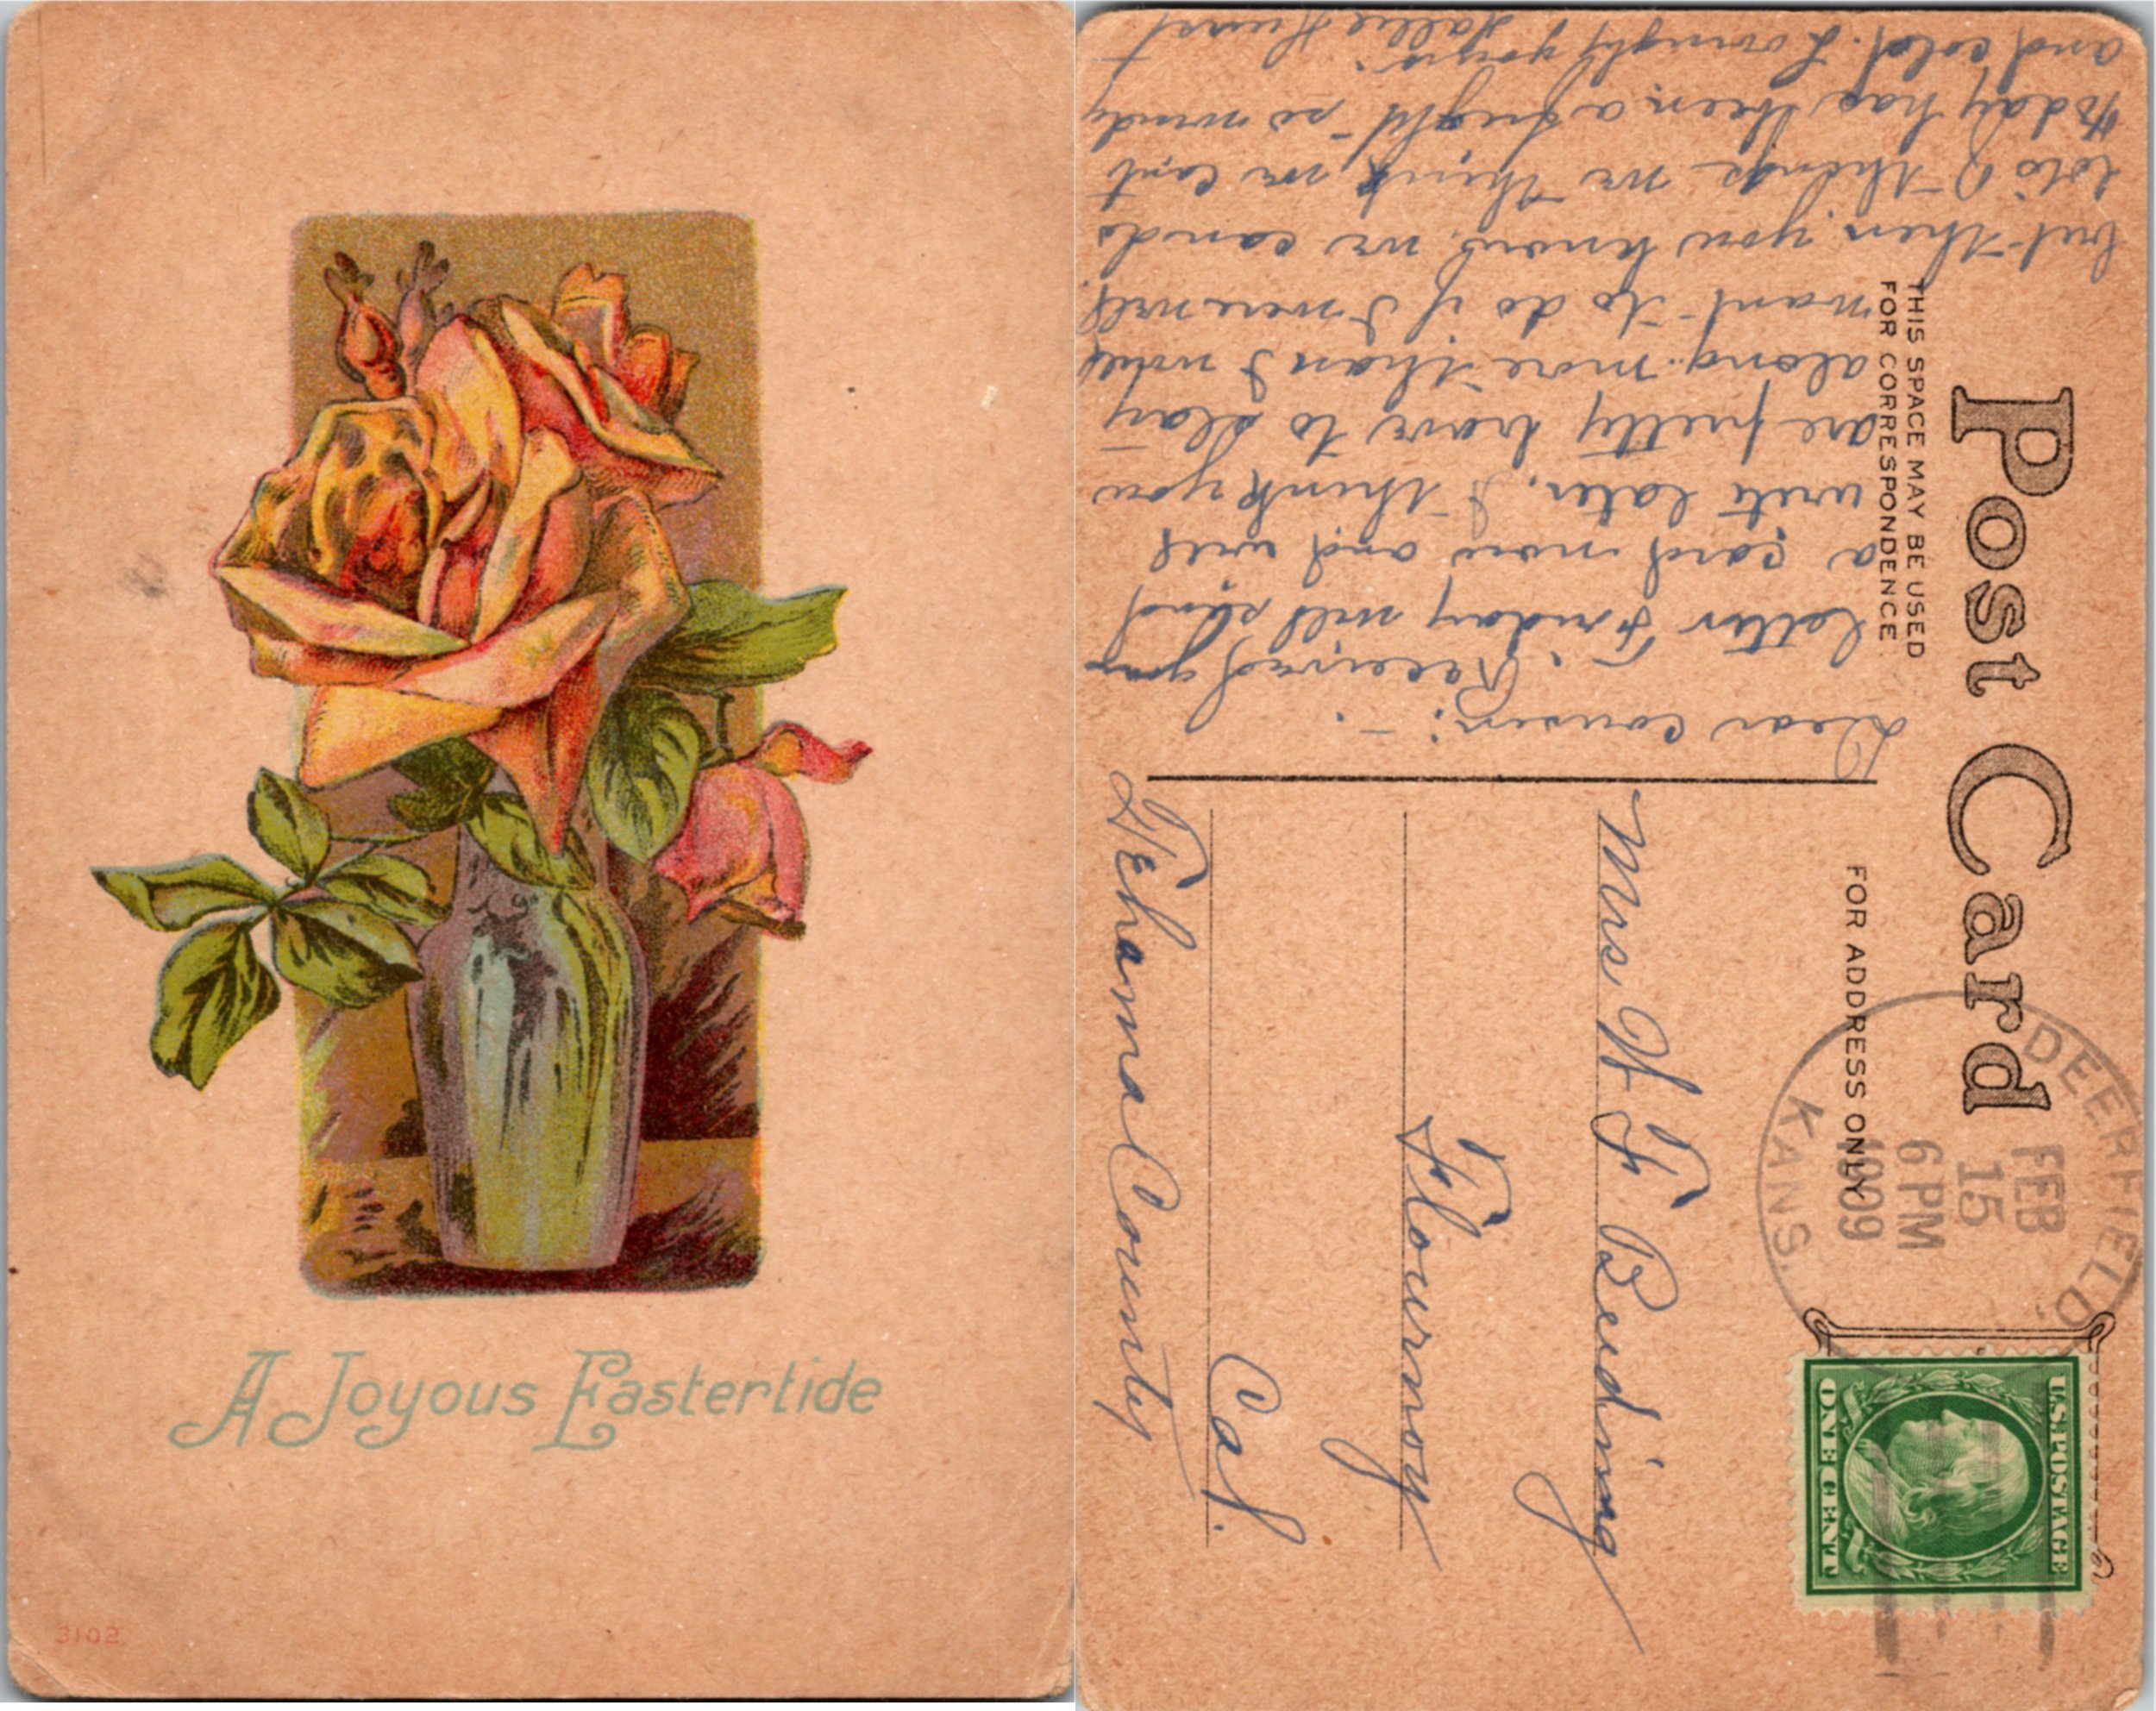 A Joyous Eastertide
3102
Post Card
THIS SPACE MAY BE USED
FOR CORRESPONDENCE.
FOR ADDRESS ONLY
DEERFIELD,
FEB
15
6 PM
1909
KANS.
U.S. POSTAGE
ONE CENT
Dear cousin:-
Received your
letter Friday will send
a card now and will
write later, I think you
are pretty brave to stay
along more than I would
want to do if I were well.
but then you know we can do
lots of things we think we cant
today has been a fright - so windy
and cold. Lovingly yours. Hurst
Mrs W F Beiding
Flournoy
Cal.
Tehama County